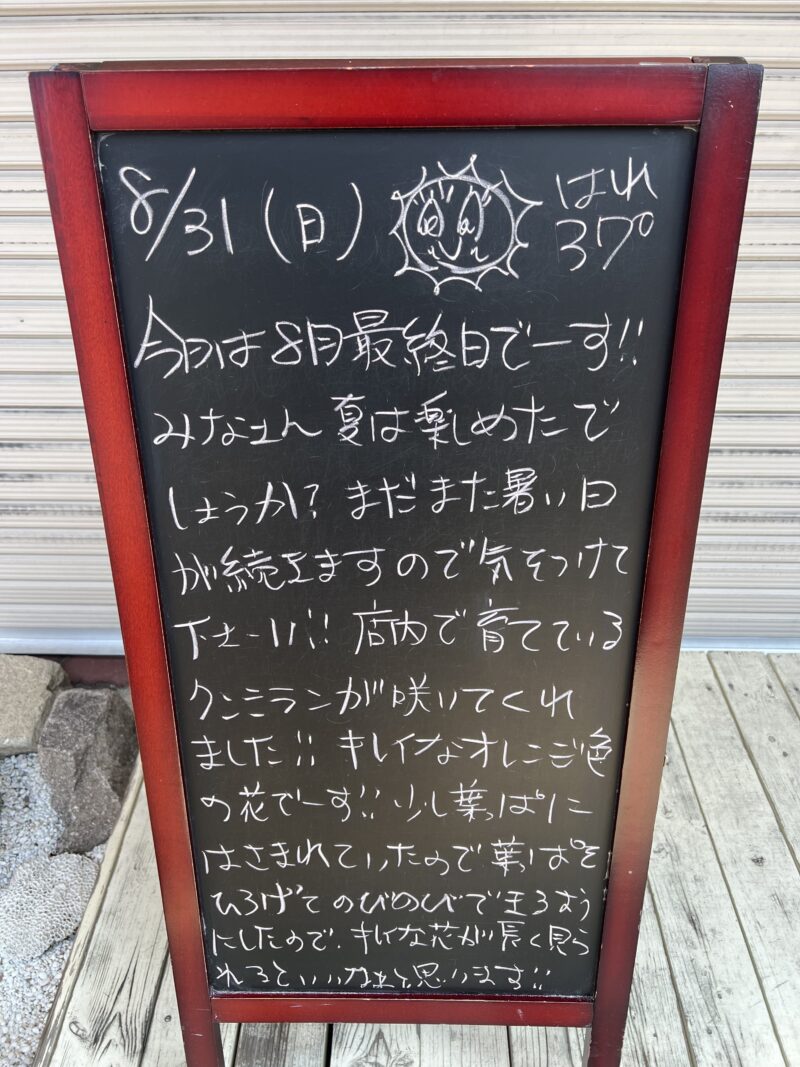 8/31(日) はれ
37°
今日は8月最終日でーす!!
みなさん 夏は楽しめたで
しょうか? まだまだ暑い日
が続きますので気をつけて
下さーい!! 店内で育てている
クンシランが咲いてくれ
ました!! キレイなオレンジ色
の花でーす!! 少し葉っぱに
はさまれていたので葉っぱを
ひろげてのびのびできるよう
にしたので、キレイな花が長く見ら
れるといいなぁと思います!!